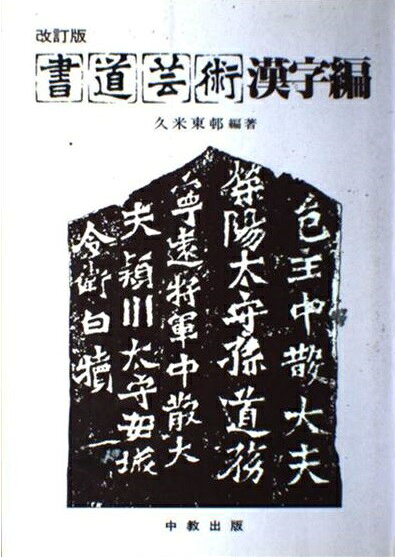 改訂版
書道芸術漢字編
久米東邨編著
邑主中散大夫
滎陽太守孫道務
寧遠将軍中散大
夫潁川太守安城
令衛白犢
中教出版